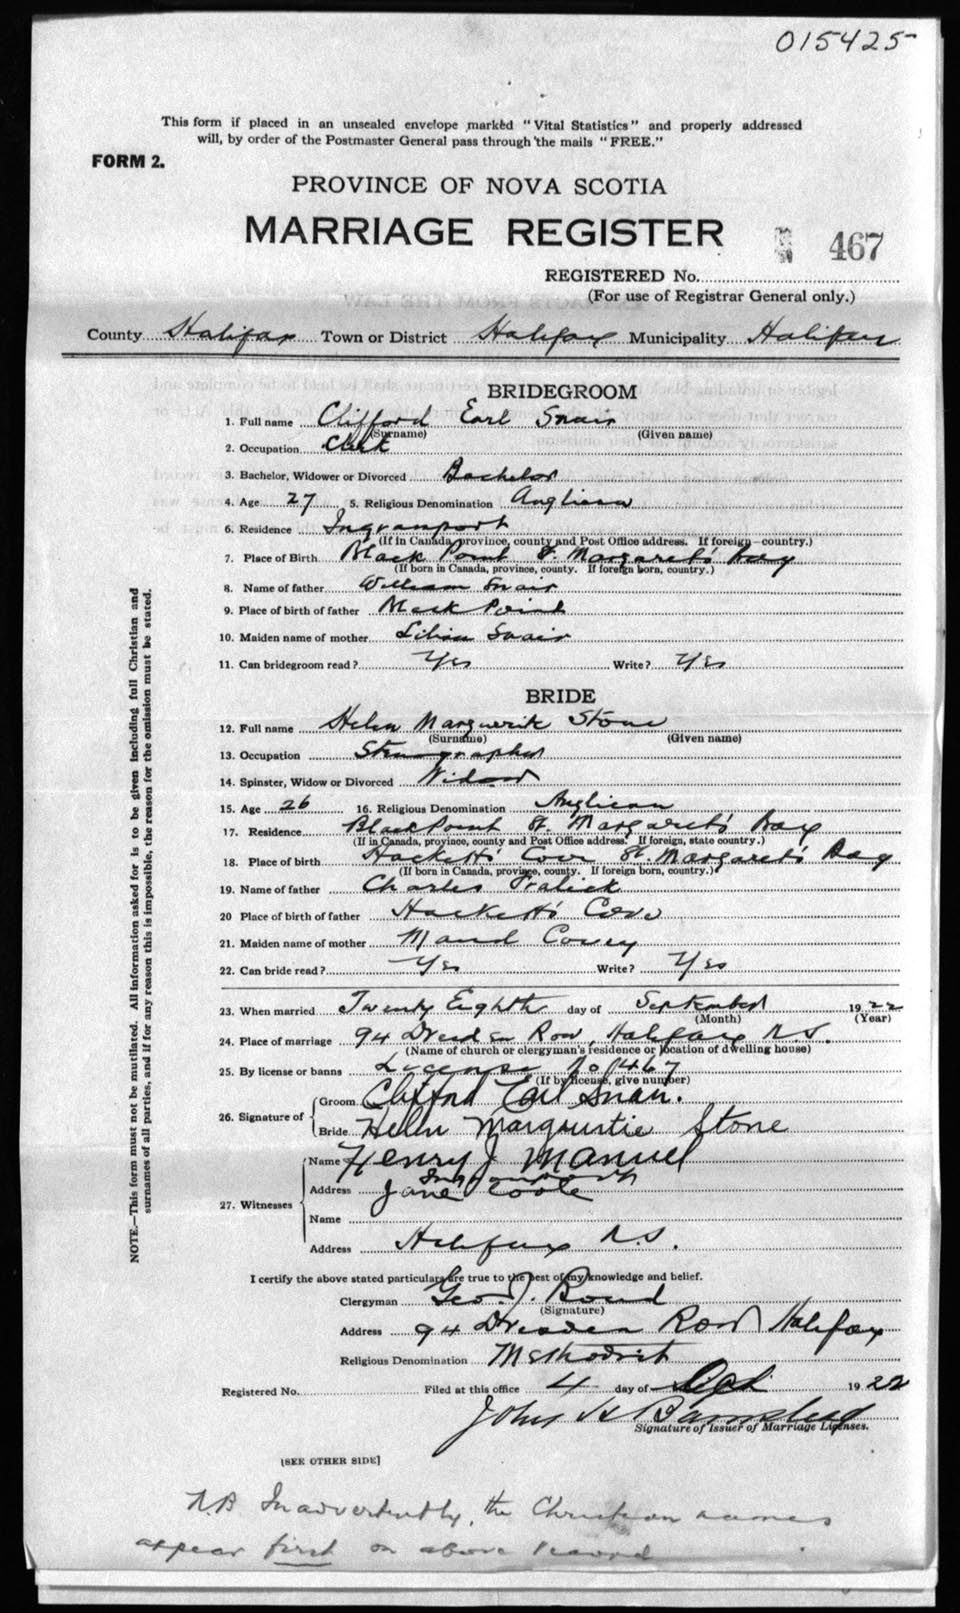 015425
This form if placed in an unsealed envelope marked "Vital Statistics" and properly addressed
will, by order of the Postmaster General pass through the mails "FREE."
FORM 2.
PROVINCE OF NOVA SCOTIA
MARRIAGE REGISTER
467
REGISTERED No.
(For use of Registrar General only.)
County Halifax Town or District Halifax Municipality Halifax
BRIDEGROOM
1. Full name Clifford Earl Snair
(Surname) (Given name)
2. Occupation Clerk
3. Bachelor, Widower or Divorced Bachelor
4. Age 27 5. Religious Denomination Anglican
6. Residence Ingramport
(If in Canada, province, county and Post Office address. If foreign—country.)
7. Place of Birth Black Point St. Margaret's Bay
(If born in Canada, province, county. If foreign born, country.)
8. Name of father William Snair
9. Place of birth of father Black Point
10. Maiden name of mother Lilian Snair
11. Can bridegroom read? Yes Write? Yes
BRIDE
12. Full name Helen Marguerite Stone
(Surname) (Given name)
13. Occupation Stenographer
14. Spinster, Widow or Divorced Widow
15. Age 26 16. Religious Denomination Anglican
17. Residence Black Point St. Margaret's Bay
(If in Canada, province, county and Post Office address. If foreign, state country.)
18. Place of birth Hackett's Cove St. Margaret's Bay
(If born in Canada, province, county. If foreign born, country.)
19. Name of father Charles Fralick
20 Place of birth of father Hackett's Cove
21. Maiden name of mother Maud Covey
22. Can bride read? Yes Write? Yes
23. When married Twenty Eighth day of September 1922
(Month) (Year)
24. Place of marriage 94 Dresden Row, Halifax N.S.
(Name of church or clergyman's residence or location of dwelling house)
25. By license or banns License No 1467
(If by license, give number)
26. Signature of
Groom Clifford Earl Snair.
Bride Helen Marguerite Stone
27. Witnesses
Name Henry J Manuel
Address Jane Coole
Name
Address Halifax N.S.
I certify the above stated particulars are true to the best of my knowledge and belief.
Clergyman Geo. J. Bond
(Signature)
Address 94 Dresden Row Halifax
Religious Denomination Methodist
Registered No. Filed at this office 4 day of 1922
John H Barnstead
Signature of Issuer of Marriage Licenses.
[SEE OTHER SIDE]
N.B Inadvertently, the Christian names
appear first on above record
NOTE.—This form must not be mutilated. All information asked for is to be given including full Christian and
surnames of all parties, and if for any reason this is impossible, the reason for the omission must be stated.